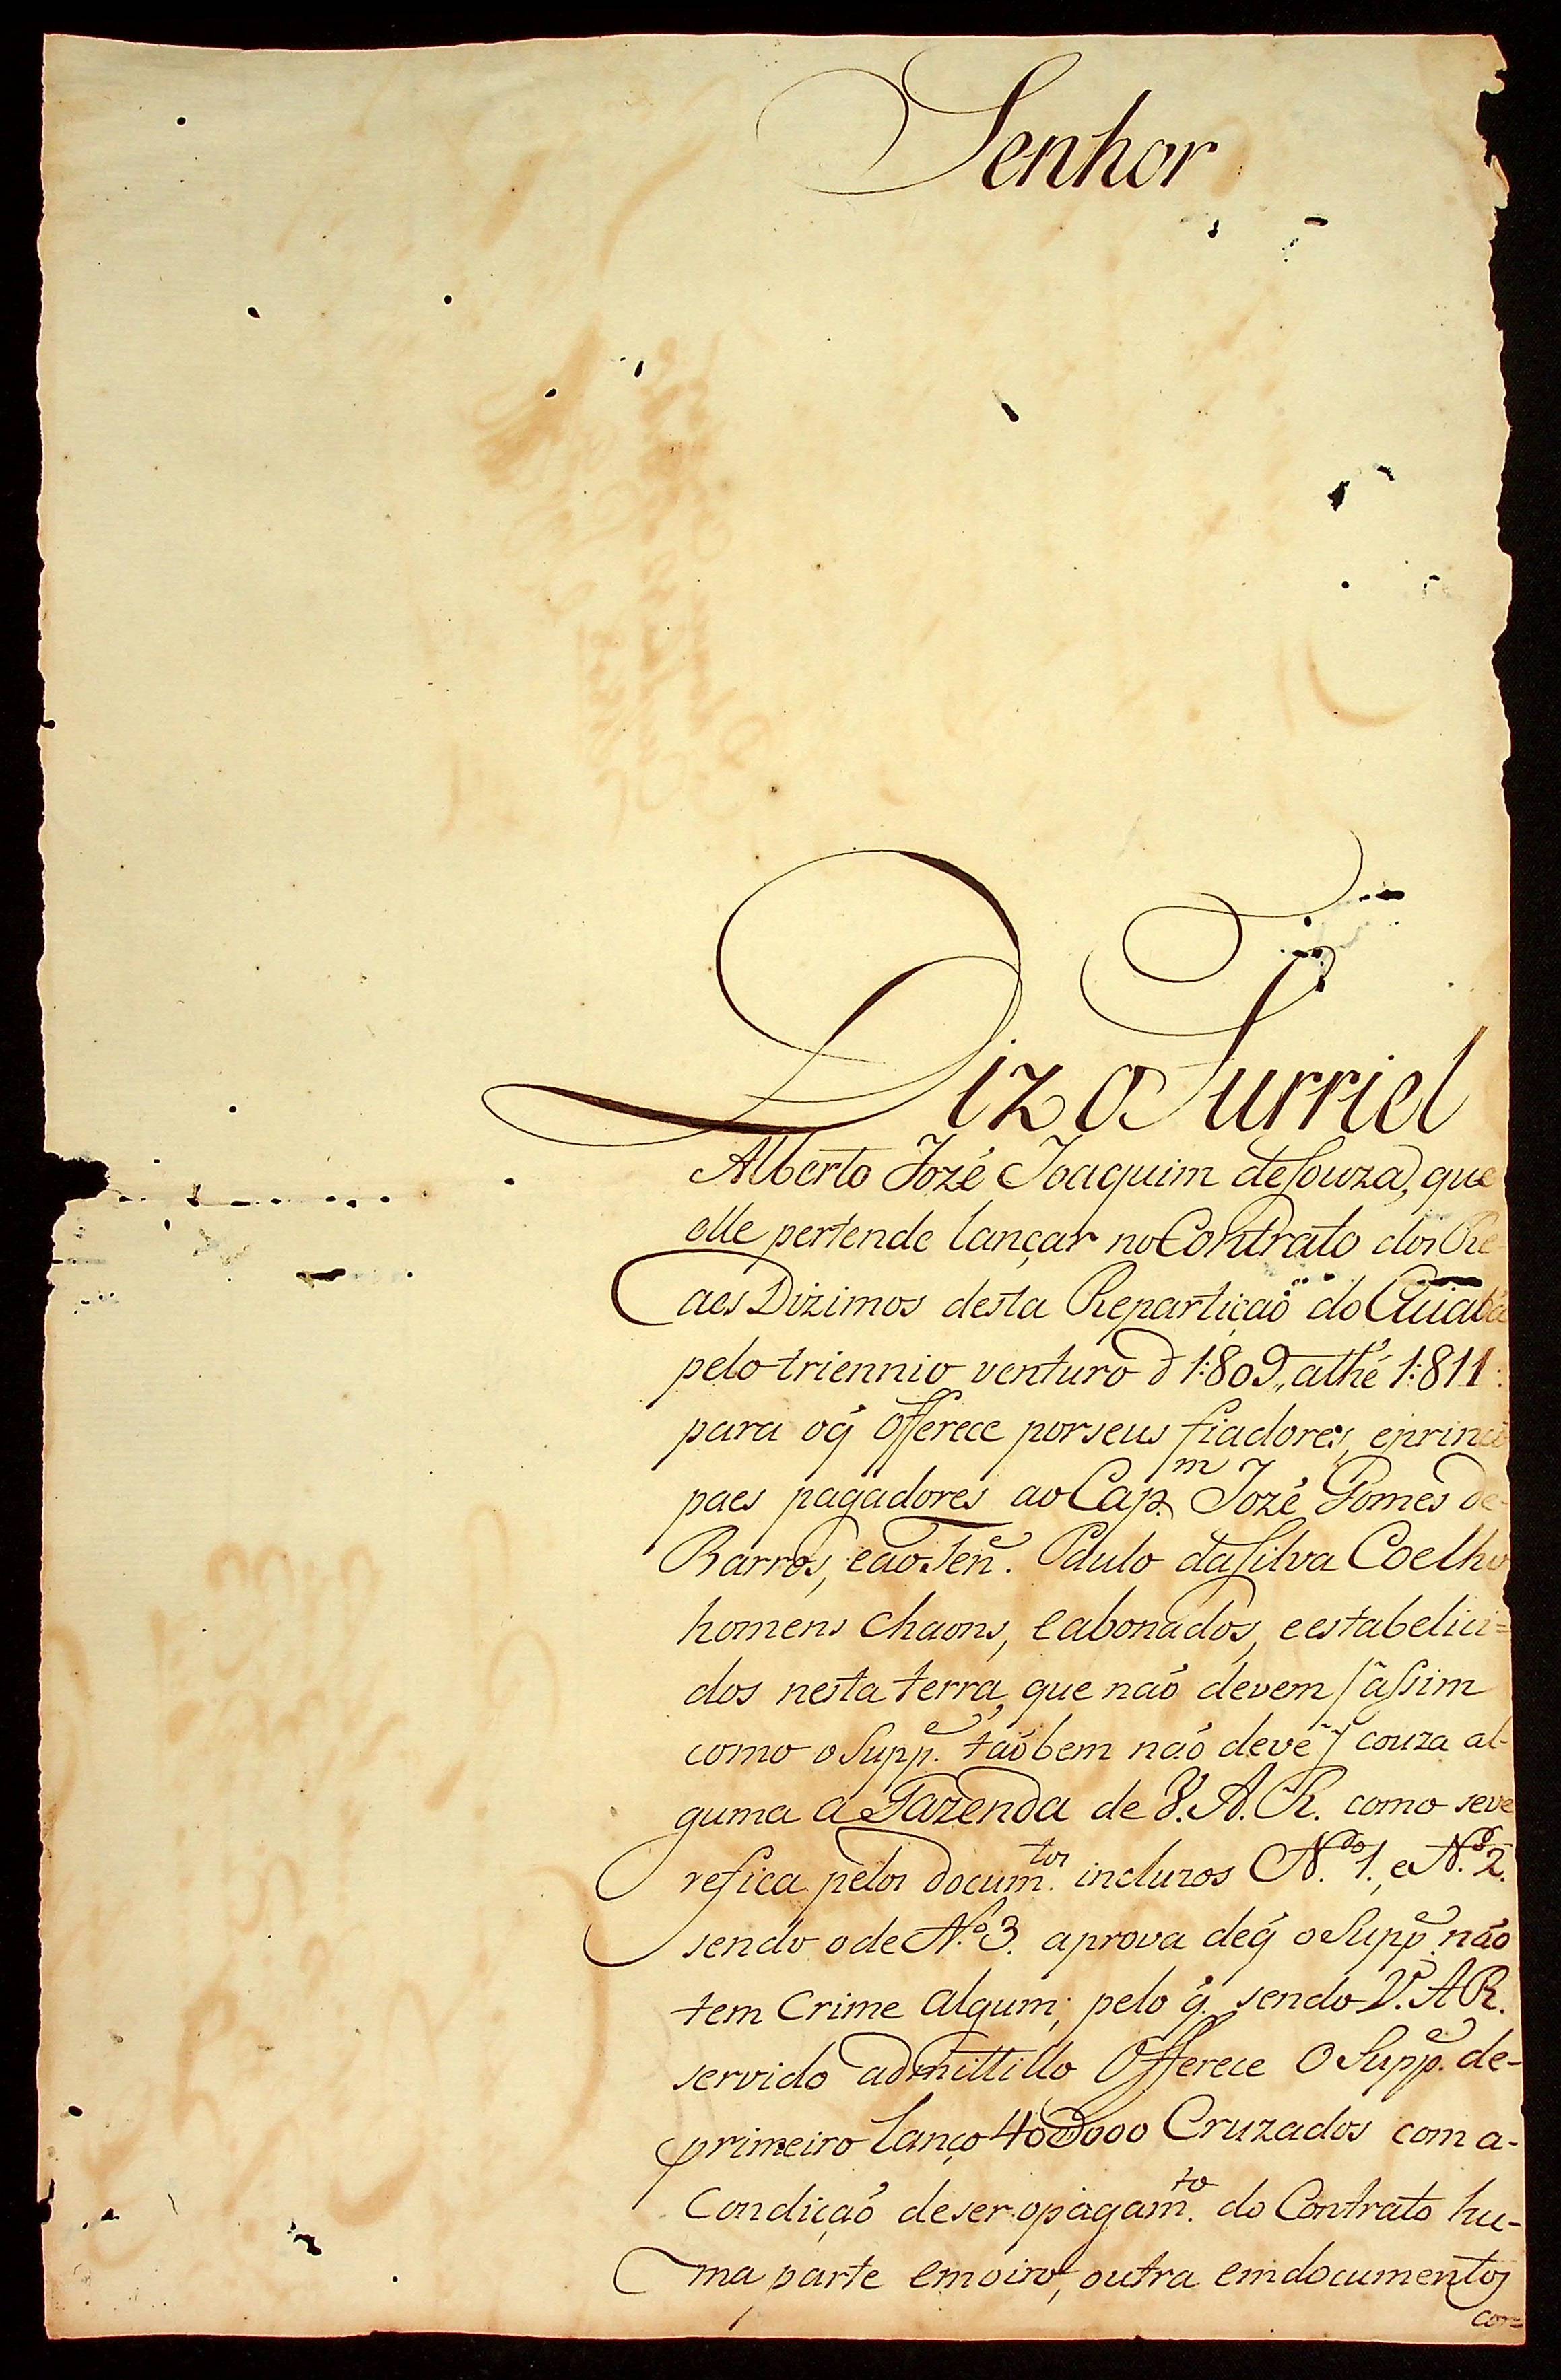 Senhor
Diz o Furriel
Alberto Jozé Joaquim de Souza, que
elle pertende lançar no Contrato dos Re-
aes Dizimos desta Repartiçaõ do Cuiabá
pelo triennio venturo d 1:809,, athé 1:811:
para oq̃ offerece por seus fiadores, e princi
paes pagadores ao Cap.m Jozé Gomes de-
Barros, e ao Ten.e Paulo da Silva Coelho
homens chaons, e abonados, e estabelici=
dos nesta terra, que naó devem / assim
como o Supp.e taóbem naó deve / couza al-
guma a Fazenda de V. A. R. como seve
refica pelos docum.tos incluzos N.o 1., e N.o 2.
sendo o de N.o 3. aprova deq̃ o Supp.e naó
tem Crime algum; pelo q̃ sendo V. A R.
servido admittillo offerece o Supp.e de-
primeiro lanço 40D000 Cruzados com a-
Condiçaó de ser o pagam.to do Contrato hu-
ma parte em oiro, outra em documentos
con=